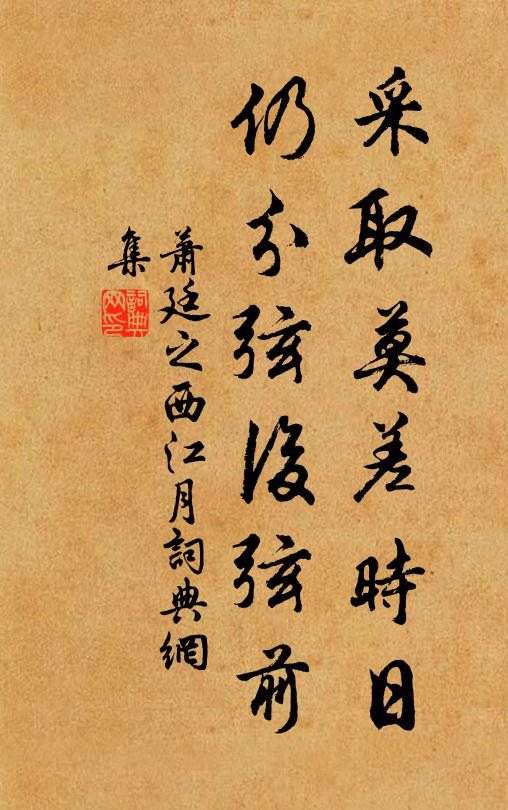 采取莫差時日
仍分弦後弦前
蕭廷之西江月詞典網
集
詞典網印